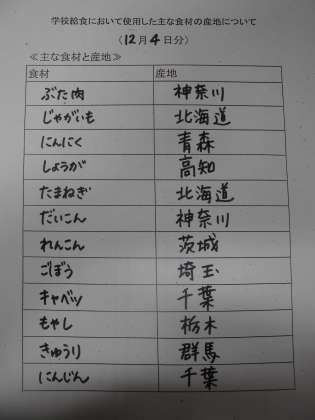 学校給食において使用した主な食材の産地について
(12月4日分)
≪主な食材と産地≫
食材 産地
ぶた肉 神奈川
じゃがいも 北海道
にんにく 青森
しょうが 高知
たまねぎ 北海道
だいこん 神奈川
れんこん 茨城
ごぼう 埼玉
キャベツ 千葉
もやし 栃木
きゅうり 群馬
にんじん 千葉